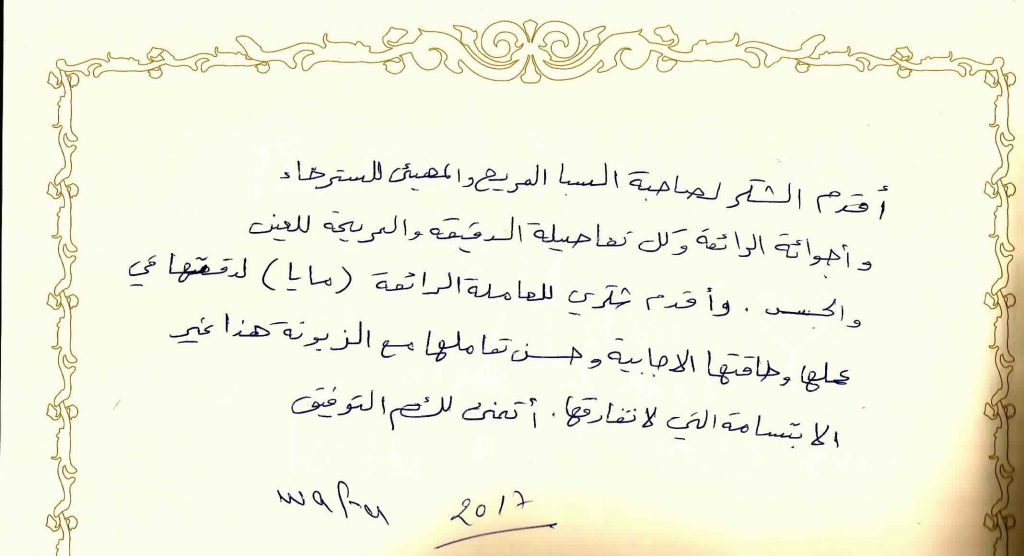 أقدم الشكر لصاحبة السبا المريح والمهيئ للسترخاء
وأجوائة الرائعة وكل تفاصيلة الدقيقه والمريحة للعين
والجسد . وأقدم شكري للعاملة الرائعة (مايا) لدقتها في
عملها وطاقتها الاجابية وحسن تعاملها مع الزبونة هذا غير
الابتسامة التي لا تفارقها . أتمنى لكم التوفيق
wafa 2017